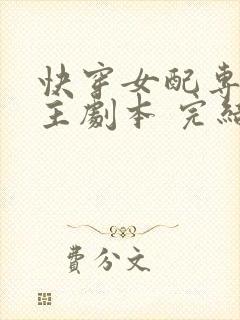 快穿女配專
主劇本 完結
費分文